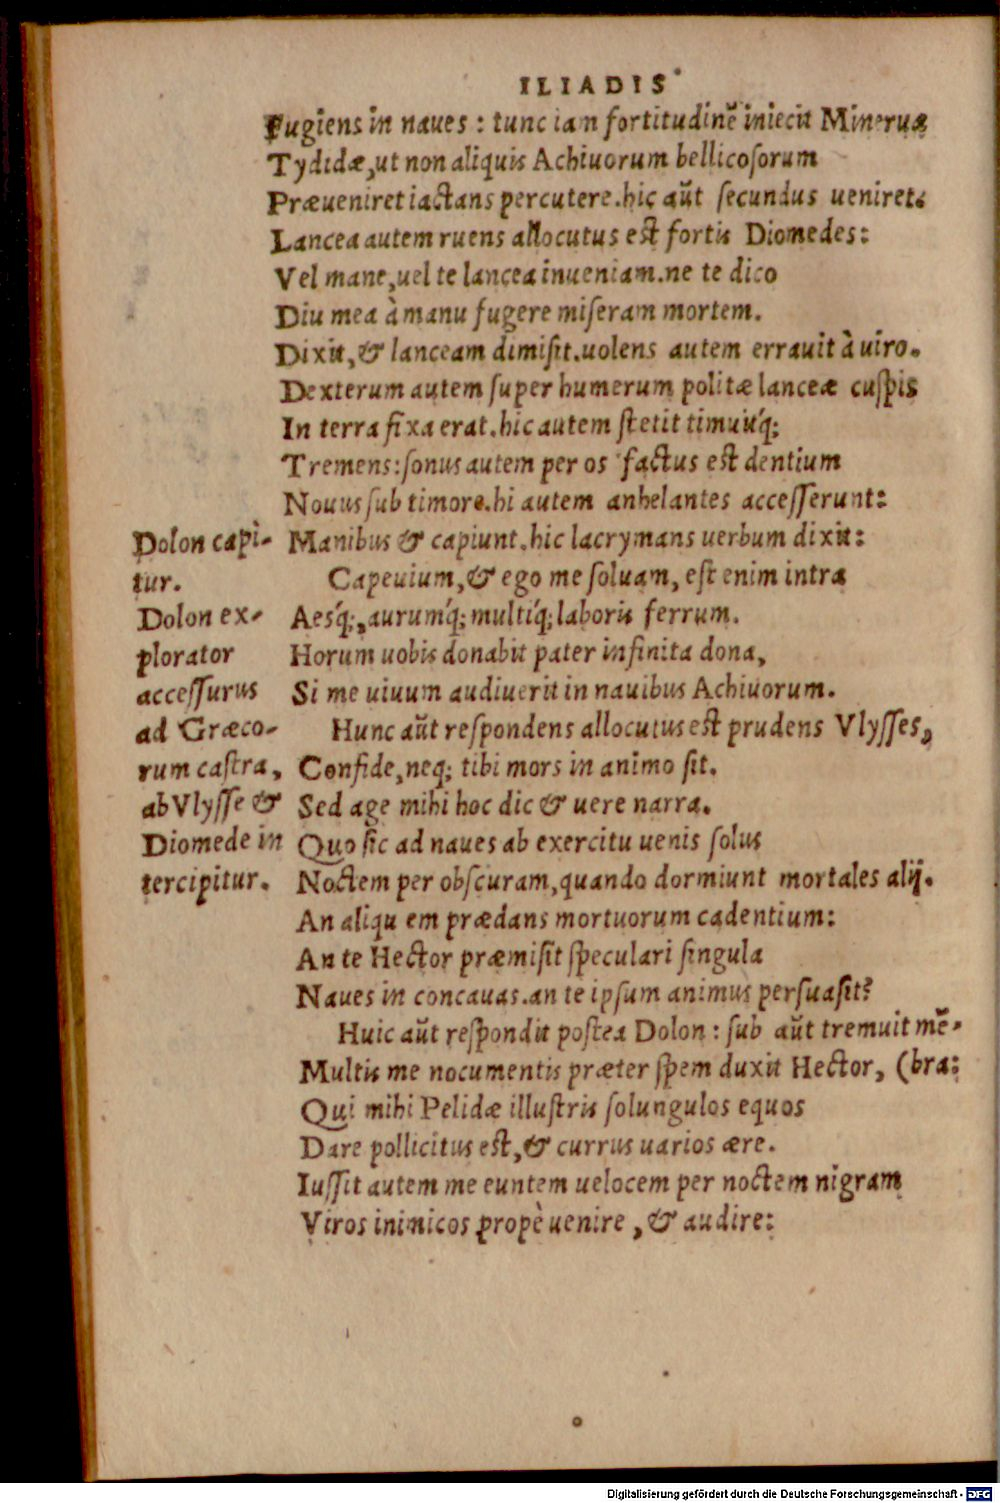 ILIADIS
Fugiens in naues : tunc ian fortitudinẽ iniecit Mineruæ
Tydidæ,ut non aliquis Achiuorum bellicoſorum
Præueniret iactans percutere.hic aũt ſecundus ueniret.
Lancea autem ruens allocutus eſt fortis Diomedes:
Vel mane,uel te lancea inueniam.ne te dico
Diu mea à manu fugere miſeram mortem.
Dixit,& lanceam dimiſit.uolens autem errauit à uiro.
Dexterum autem ſuper humerum politæ lanceæ cuſpis
In terra fixa erat.hic autem ſtetit timuitq́;
Tremens:ſonus autem per os factus eſt dentium
Nouus ſub timore.hi autem anhelantes acceſſerunt:
Manibus & capiunt.hic lacrymans uerbum dixit:
Capeuium,& ego me ſoluam, eſt enim intra
Aesq́;,aurumq́;multiq́;laboris ferrum.
Horum uobis donabit pater infinita dona,
Si me uiuum audiuerit in nauibus Achiuorum.
Hunc aũt reſpondens allocutus eſt prudens Vlyſſes,
Confide,neq; tibi mors in animo ſit.
Sed age mihi hoc dic & uere narra.
Quo ſic ad naues ab exercitu uenis ſolus
Noctem per obſcuram,quando dormiunt mortales alij.
An aliqu em prædans mortuorum cadentium:
An te Hector præmiſit ſpeculari ſingula
Naues in concauas.an te ipſum animus perſuaſit?
Huic aũt reſpondit poſtea Dolon : ſub aũt tremuit mẽ-
Multis me nocumentis præter ſpem duxit Hector, (bra:
Qui mihi Pelidæ illuſtris ſolungulos equos
Dare pollicitus eſt,& currus uarios ære.
Iuſſit autem me euntem uelocem per noctem nigram
Viros inimicos propè uenire , & audire:
Dolon capì-
tur.
Dolon ex-
plorator
acceſſurus
ad Græco-
rum caſtra,
ab Vlyſſe &
Diomede in
tercipitur.
Digitalisierung gefördert durch die Deutsche Forschungsgemeinschaft - DFG